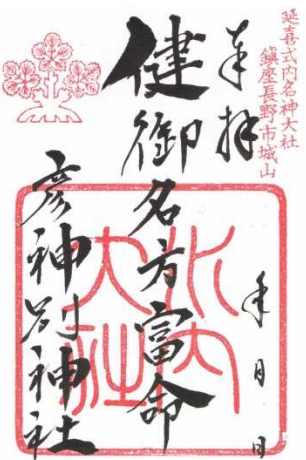 延喜式内名神大社
鎮座長野市城山
奉拝
健御名方富命
彦神別神社
水内大社
年 月 日